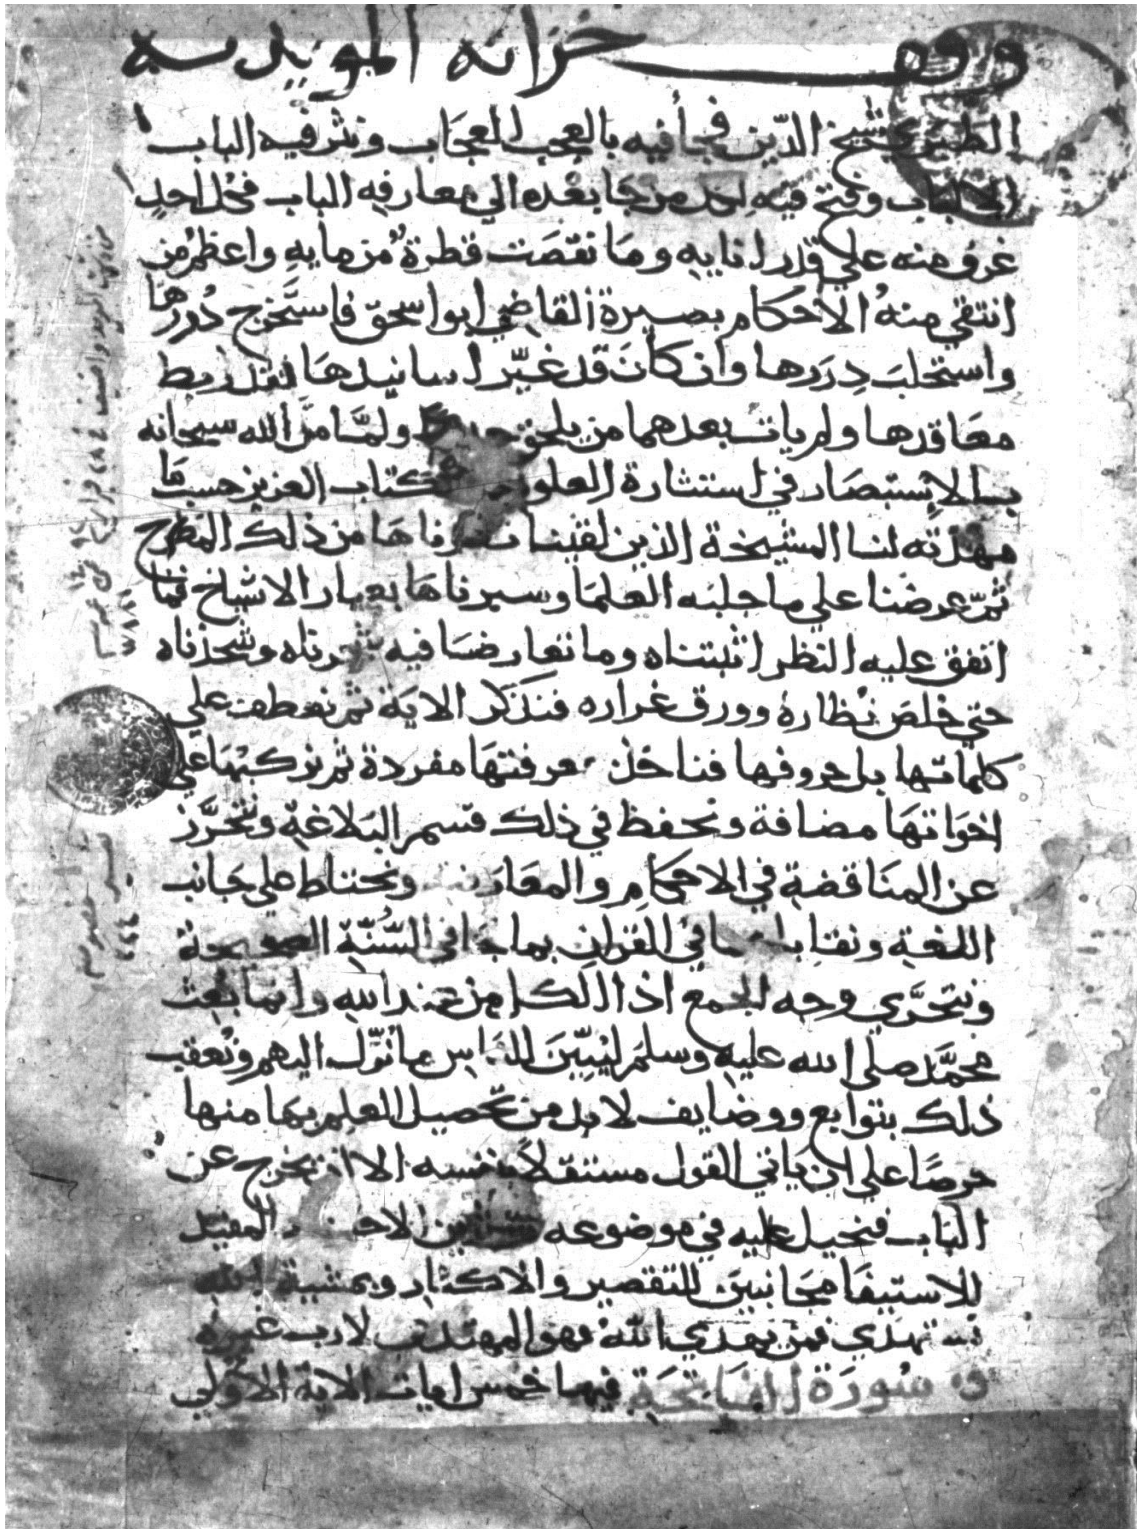 وقف خزانة المويدية
الطبري شيخ الدين فجأ فيه بالعجب العجاب ونثر فيه الباب
الالباب وفتح فيه لكل من جا بعده الي معارفه الباب فكل احدٍ
غرف منه علي قدر انايه وما نقصت قطرةٌ من مايه واعظم من
انتقي منهُ الاحكام بصيرة القاضي ابو اسحق فاستخرج دُررها
واستحلبَ دِرَرها وان كانَ قد غيّر اسانيدها لقد ربط
معاقدها ولم يات بعدهما من يلحق ولمَّا منَّ الله سبحانه
بالاستبصار في استثارة العلوم الكتاب العزيز حسب ما
مهدته لنا المشيخة الذين لقينا نظرناها من ذلك المطرح
ثمّ عرضنا علي ما جلبه العلما وسبرناها بعيار الاشياخ فما
اتفق عليه النظر اثبتناه وما تعارضا فيه شجرناه وشحذناه
حتي خلص نُظاره وورق عراره فنذكر الاية ثم نعطف علي
كلماتها بل حروفها فناخذ معرفتها مفردة ثم نركبها علي
اخواتها مضافة ونحفظ في ذلك قسم البلاغةِ ونتحرَّز
عن المناقضةِ في الاحكامِ والمعارضة ونحتاط علي جانب
اللغة ونقابلها في القران بما جا في السُّنّة الصحيحة
ونتحرَّي وجه الجمع اذ الكل من عند الله وانما بُعِث
محمَّد صلي الله عليه وسلم ليُبيّنَ للناس ما نُزّل اليهم ونُعقب
ذلك بتوابع ووضايف لا بد من تحصيل العلم بها منها
حرصًا علي ان ياتي القول مستقلاً بنفسه الا ان يخرج عن
الباب فنحيل عليه في موضوعه
للاستيفا مجانبين للتقصير والاكثار وبمشية الله
نستهدي فمن يهدي اللهُ فهو المهتدي لا رب غيره
سُورَة الفاتحَة فيها خمس ايات الاية الاولي